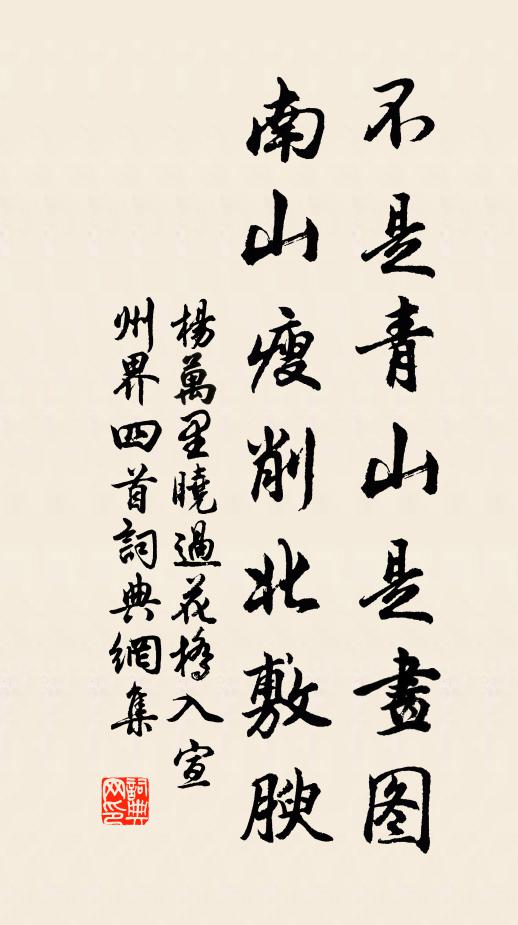 不是青山是畫图
南山瘦削北敷腴
楊萬里曉過花橋入宣
州界四首詞典網集
詞典
网印